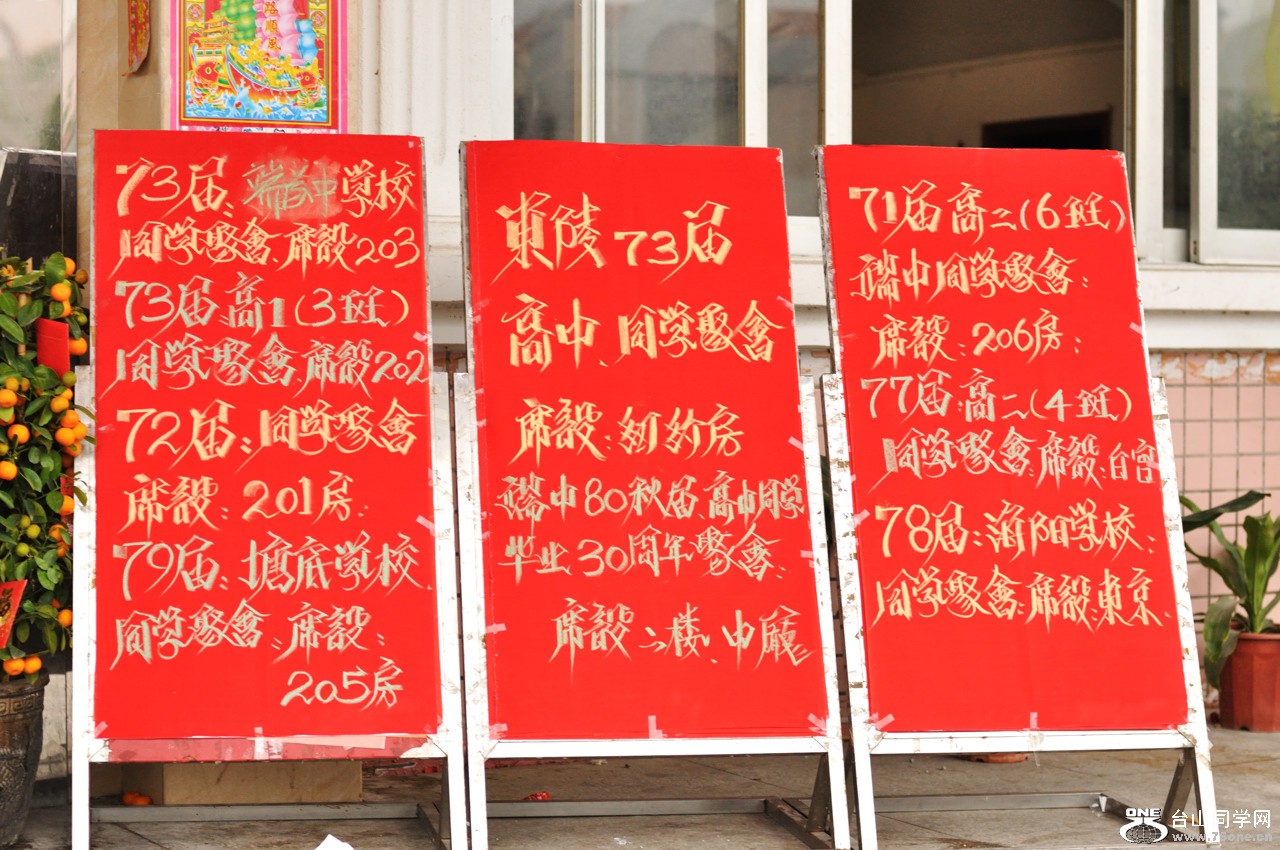 73届、端芬中学校
同学聚會.席設203
73届高1(3班)
同学聚會.席設202
72届：同学聚會
席設：201房.
79届：塘底学校
同学聚會.席設：
205房
東陵73届
高中、同学聚會
席設：
端中80秋届.高中同学
毕业30周年聚會.
席設：二楼、中廳
71届高二(6班)
端中同学聚會：
席設：206房；
77届：高二(4班)
同学聚會：席設：白宫
78届：海阳学校：
同学聚會.席設：東京
ONE 台山同学网